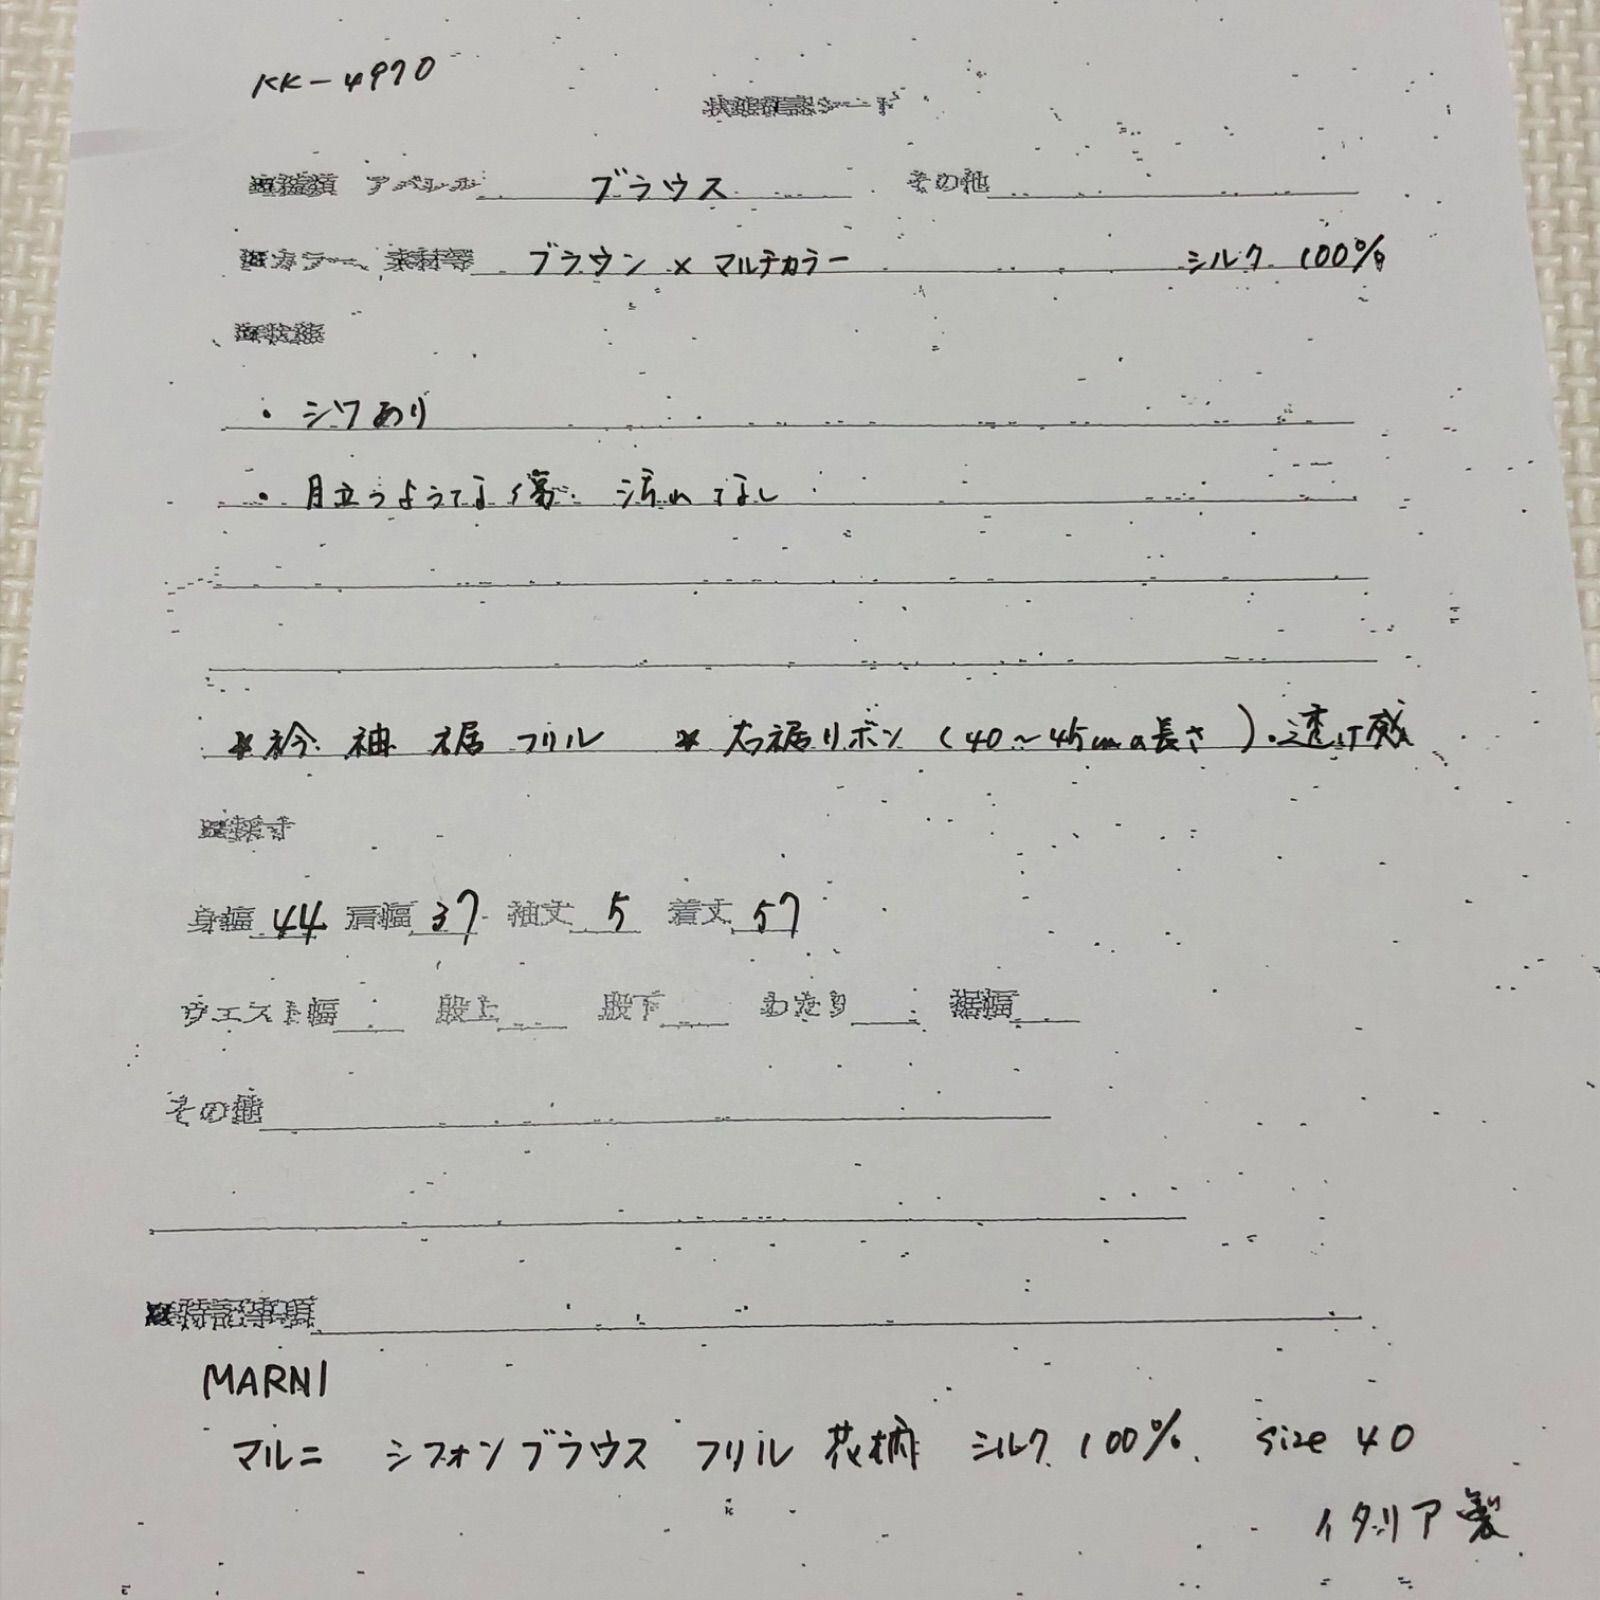 KK-4970
状態確認シート
■種類 アパレル ブラウス その他
■カラー、素材等 ブラウン×マルチカラー シルク 100%
■状態
・シワあり
・目立つような傷・汚れなし
*衿 袖 裾 フリル *右裾リボン (40～45cmの長さ)・透け感
■採寸
身幅 44 肩幅 37 袖丈 5 着丈 57
ウエスト幅 股上 股下 わたり 裾幅
その他
■特記事項
MARNI
マルニ シフォンブラウス フリル 花柄 シルク 100% size 40
イタリア製